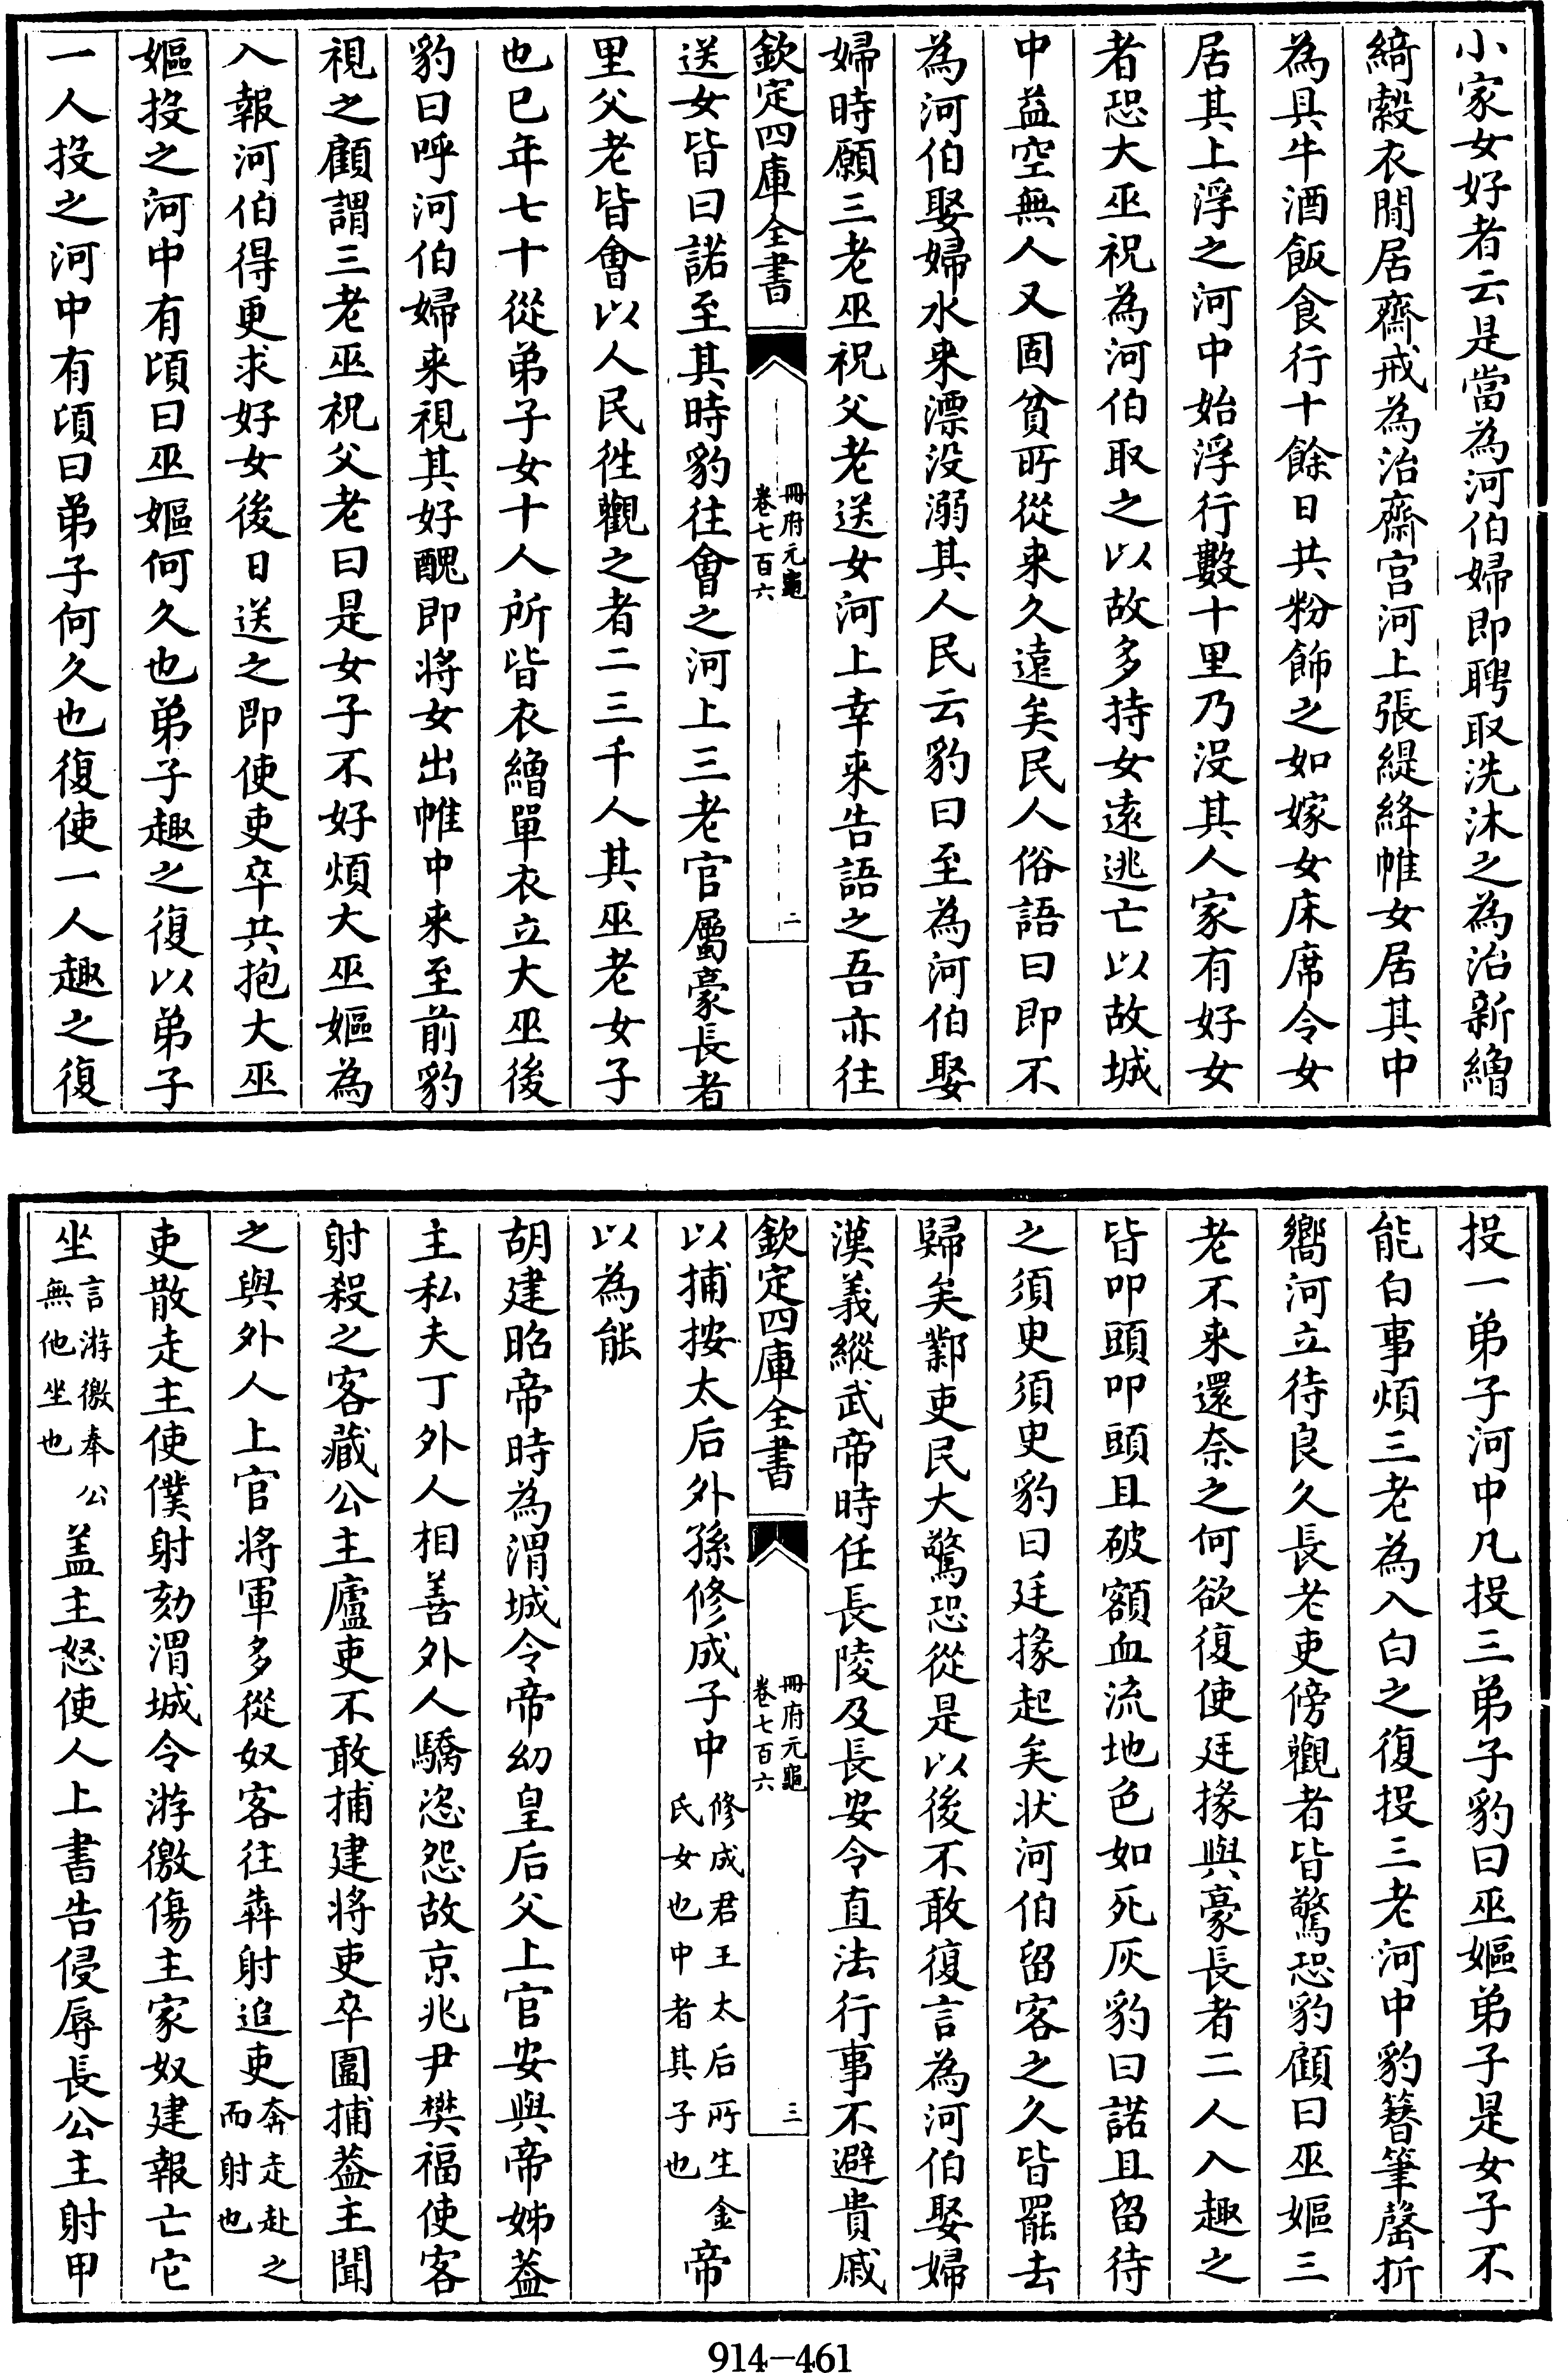 小家女好者云是當為河伯婦即聘取洗沐之為治新繒
綺縠衣閒居齋戒為治齋宫河上張緹絳帷女居其中
為具牛酒飯食行十餘日共粉飾之如嫁女床席令女
居其上浮之河中始浮行數十里乃没其人家有好女
者恐大巫祝為河伯取之以故多持女遠逃亡以故城
中益空無人又固貧所從来久遠矣民人俗語曰即不
為河伯娶婦水来漂没溺其人民云豹曰至為河伯娶
婦時願三老巫祝父老送女河上幸来告語之吾亦往
欽定四庫全書
冊府元龜
卷七百六
二
送女皆曰諾至其時豹往會之河上三老官屬豪長者
里父老皆會以人民徃觀之者二三千人其巫老女子
也已年七十從弟子女十人所皆衣繒單衣立大巫後
豹曰呼河伯婦来視其好醜即将女出帷中来至前豹
視之顧謂三老巫祝父老曰是女子不好煩大巫嫗為
入報河伯得更求好女後日送之即使吏卒共抱大巫
嫗投之河中有頃曰巫嫗何久也弟子趣之復以弟子
一人投之河中有頃曰弟子何久也復使一人趣之復
投一弟子河中凡投三弟子豹曰巫嫗弟子是女子不
能白事煩三老為入白之復投三老河中豹簪筆罄折
嚮河立待良久長老吏傍觀者皆驚恐豹顧曰巫嫗三
老不来還奈之何欲復使廷掾與豪長者二人入趣之
皆叩頭叩頭且破額血流地色如死灰豹曰諾且留待
之須臾須臾豹曰廷掾起矣状河伯留客之久皆罷去
歸矣鄴吏民大驚恐從是以後不敢復言為河伯娶婦
漢義縱武帝時任長陵及長安令直法行事不避貴戚
欽定四庫全書
冊府元龜
卷七百六
三
以捕按太后外孫修成子中修成君王太后所生金氏女也中者其子也帝
以為能
胡建昭帝時為渭城令帝幼皇后父上官安與帝姊葢
主私夫丁外人相善外人驕恣怨故京兆尹樊福使客
射殺之客藏公主廬吏不敢捕建将吏卒圍捕葢主聞
之與外人上官将軍多從奴客往犇射追吏奔走赴之而射也
吏散走主使僕射劾渭城令游徼傷主家奴建報亡它
坐言游徼奉公無他坐也盖主怒使人上書告侵辱長公主射甲
914-461